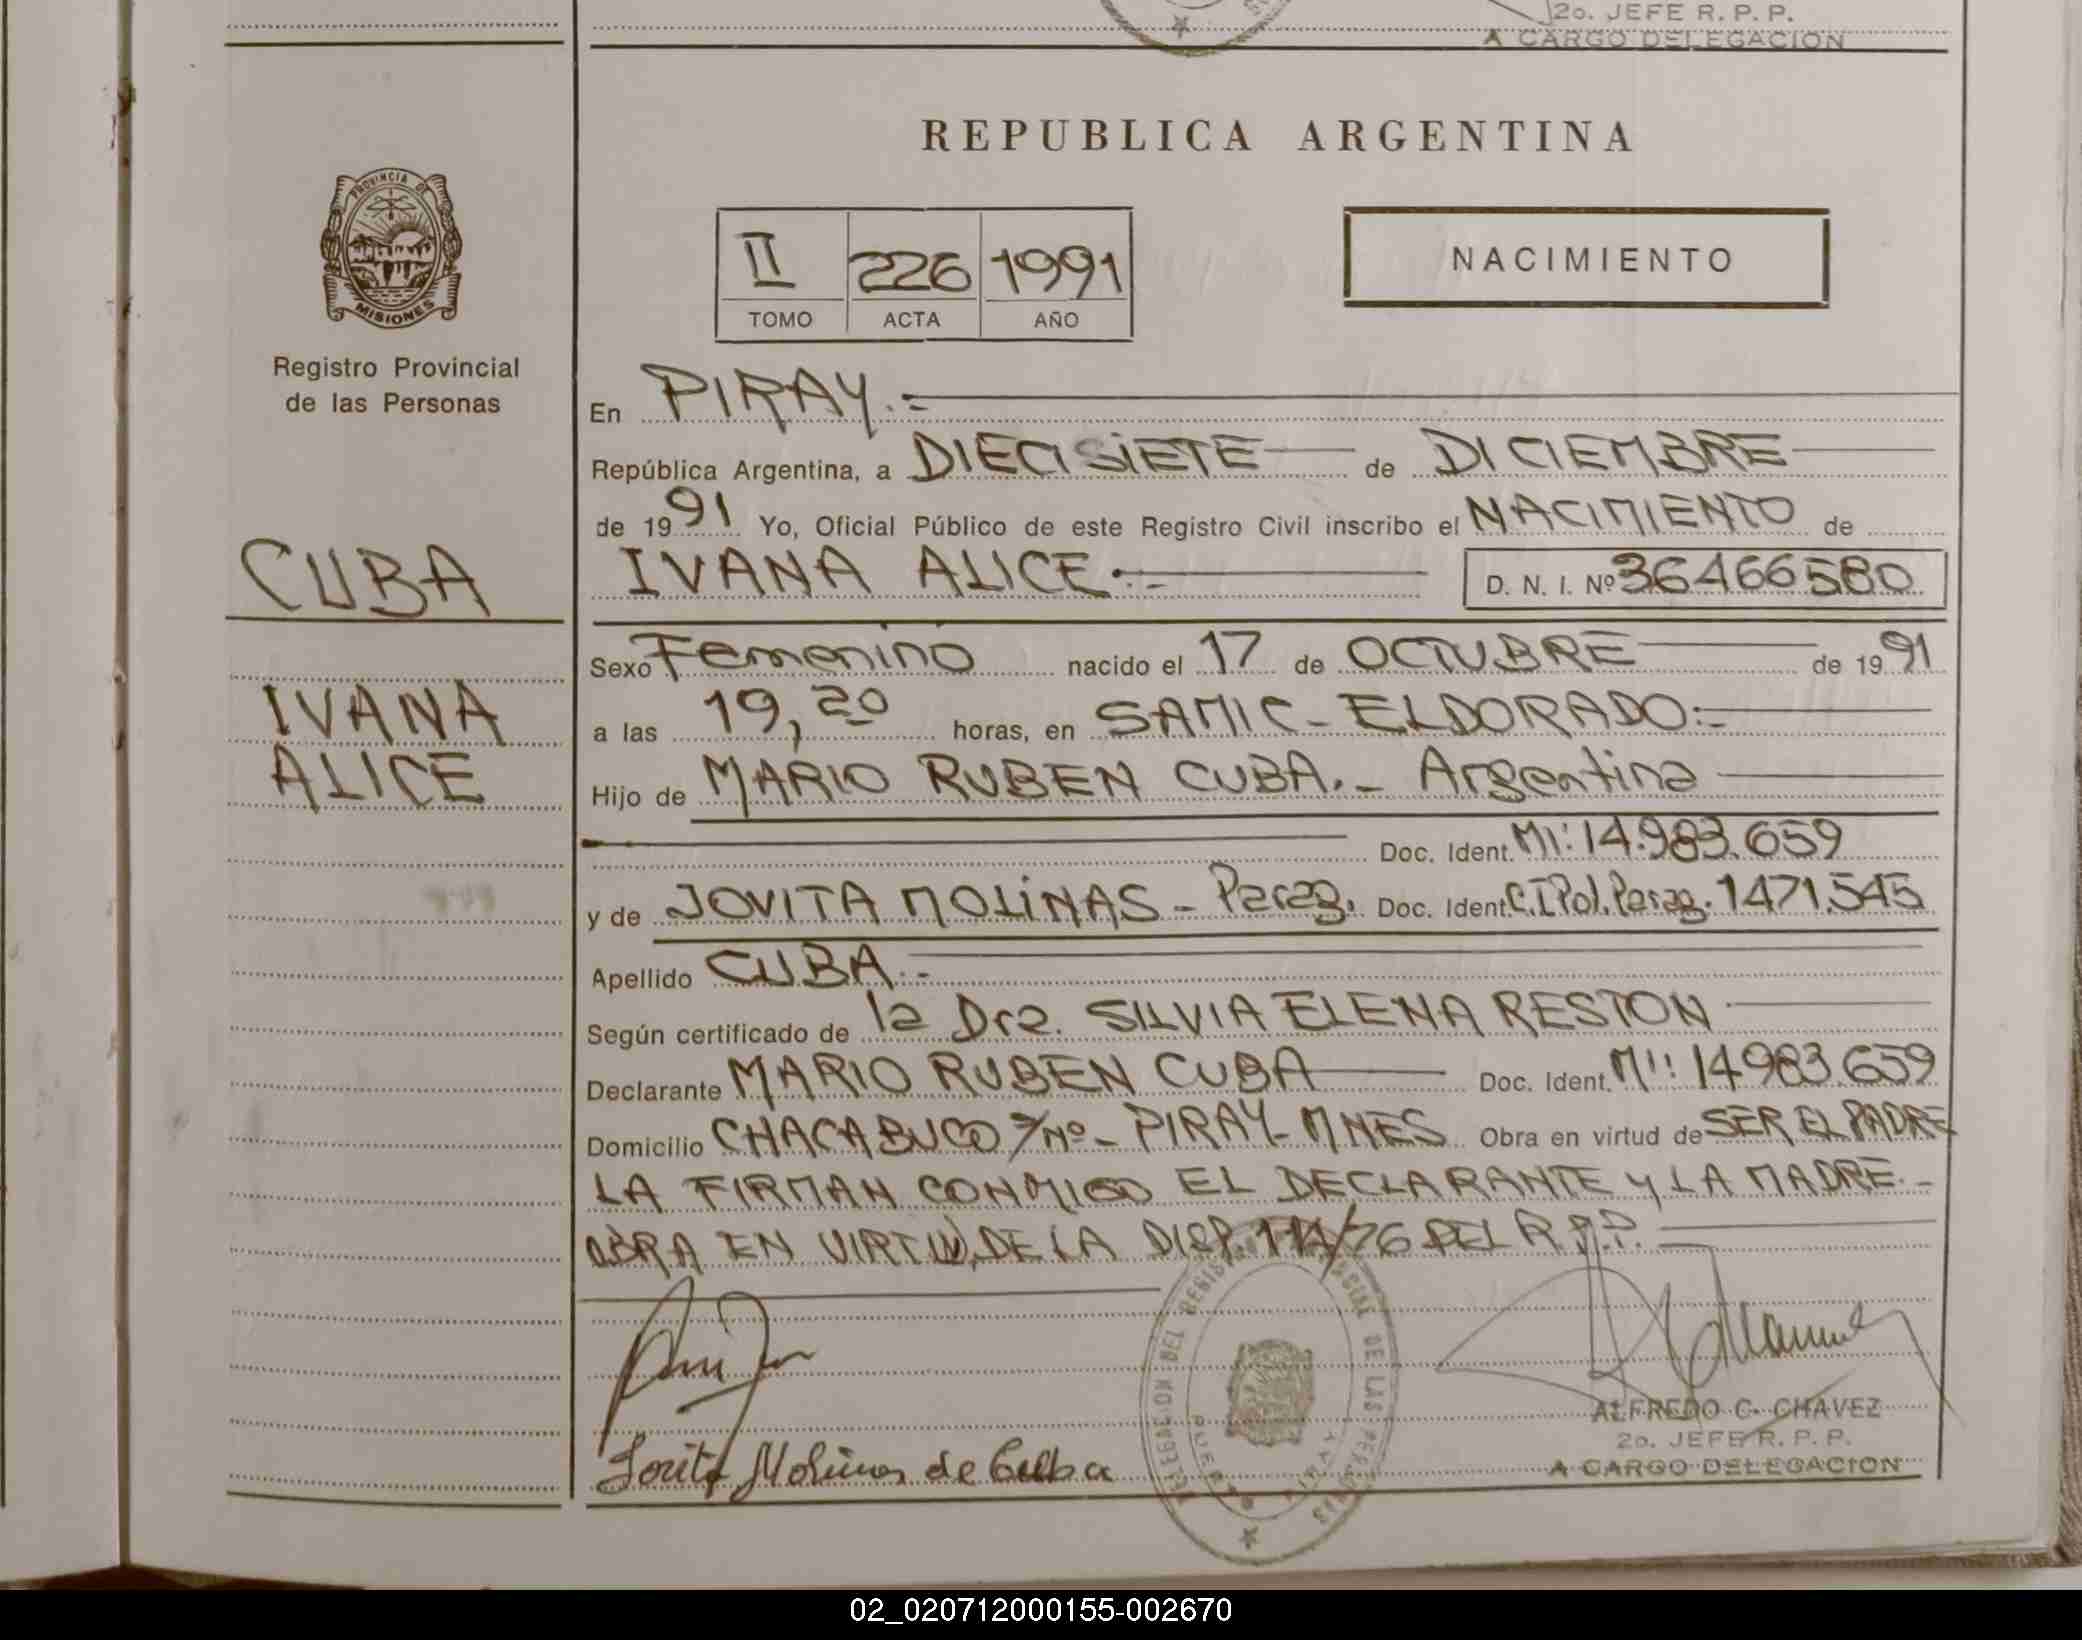 2o. JEFE R. P. P.
A CARGO DELEGACION
REPUBLICA ARGENTINA
PROVINCIA DE
MISIONES
Registro Provincial
de las Personas
II 226 1991
TOMO ACTA AÑO
NACIMIENTO
En PIRAY.-
República Argentina, a DIECISIETE de DICIEMBRE
de 19 91 Yo, Oficial Público de este Registro Civil inscribo el NACIMIENTO de
CUBA
IVANA ALICE.- D. N. I. Nº 36466580
Sexo Femenino nacido el 17 de OCTUBRE de 19 91
IVANA
a las 19,20 horas, en SAMIC-ELDORADO.-
ALICE
Hijo de MARIO RUBEN CUBA.- Argentina
Doc. Ident. MI: 14.983.659
y de JOVITA MOLINAS - Parag. Doc. Ident. C.I Pol. Parag. 1471.545
Apellido CUBA.-
Según certificado de la Dra. SILVIA ELENA RESTON
Declarante MARIO RUBEN CUBA Doc. Ident. MI: 14983.659
Domicilio CHACABUCO S/Nº - PIRAY - MNES Obra en virtud de SER EL PADRE
LA FIRMAN CONMIGO EL DECLARANTE y LA MADRE.-
OBRA EN VIRTUD DE LA DISP. 114/76 DEL R.P.P.
DELEGACION DEL REGISTRO PROVINCIAL DE LAS PERSONAS
PUERTO PIRAY
Jovita Molinas de Cuba
ALFREDO C. CHAVEZ
2o. JEFE R. P. P.
A CARGO DELEGACION
02_020712000155-002670